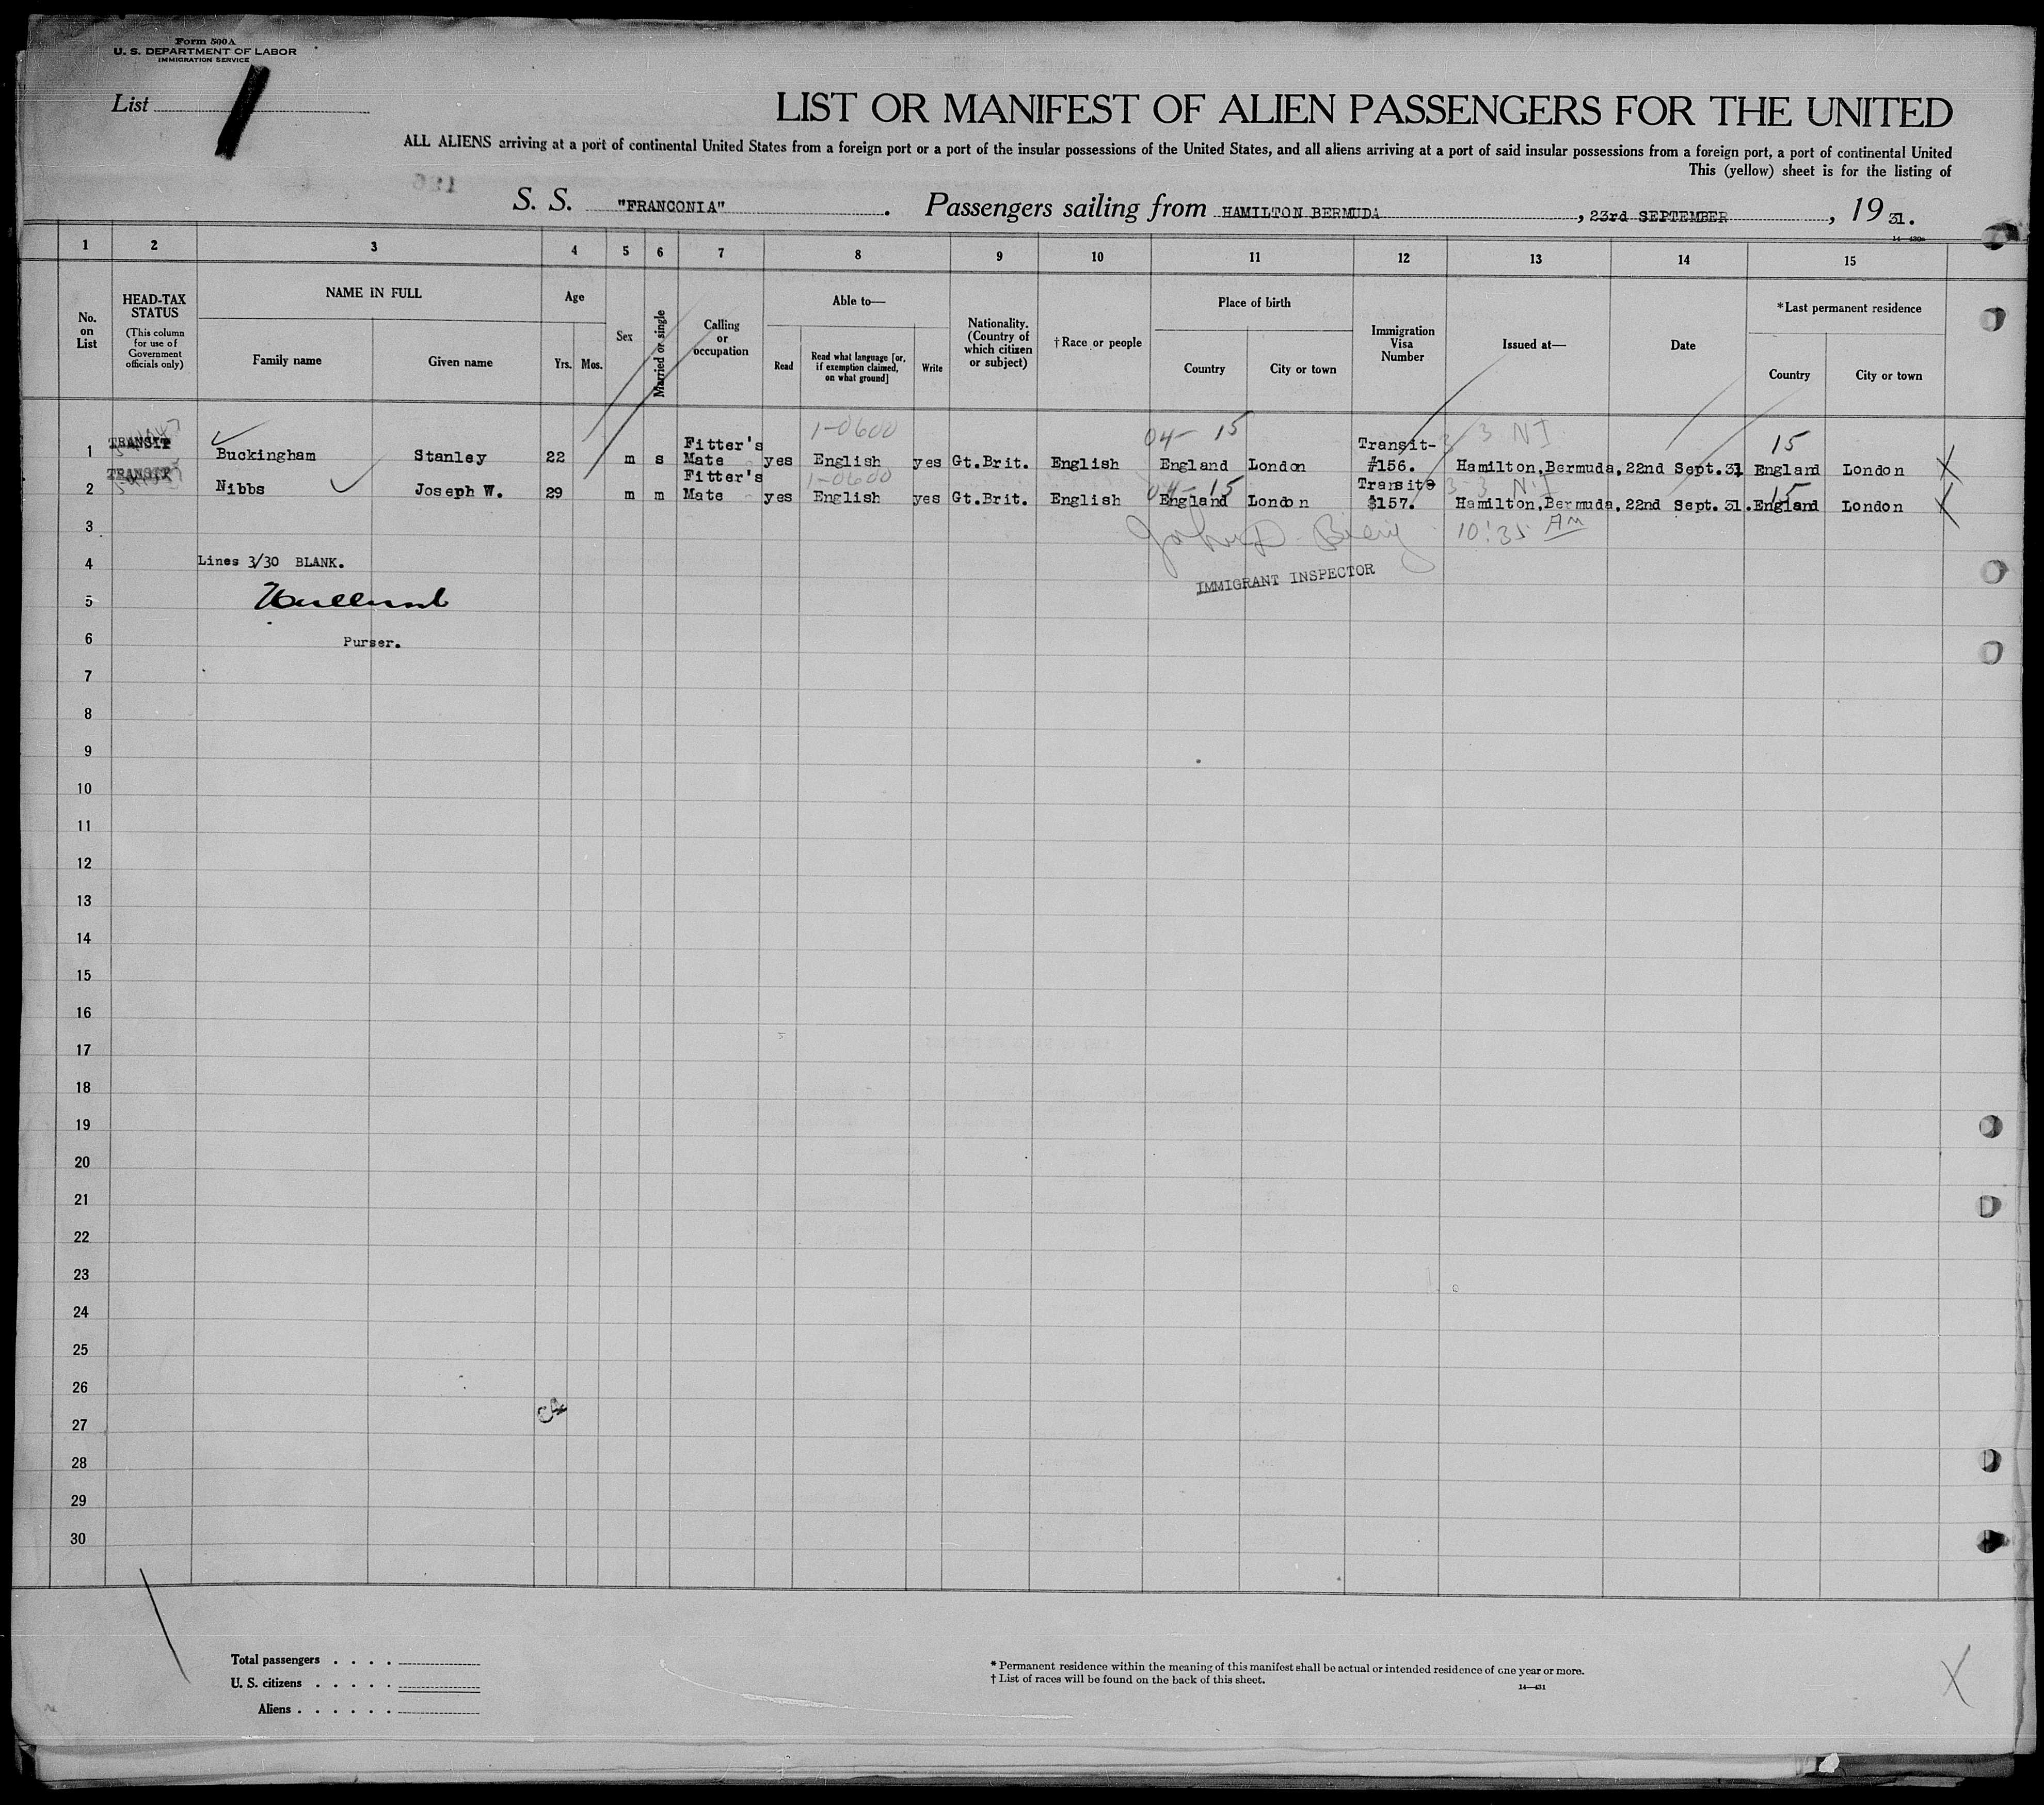 Form 500A
U. S. DEPARTMENT OF LABOR
IMMIGRATION SERVICE
List
LIST OR MANIFEST OF ALIEN PASSENGERS FOR THE UNITED
ALL ALIENS arriving at a port of continental United States from a foreign port or a port of the insular possessions of the United States, and all aliens arriving at a port of said insular possessions from a foreign port, a port of continental United
This (yellow) sheet is for the listing of
S. S. "FRANCONIA". Passengers sailing from HAMILTON BERMUDA, 23rd SEPTEMBER, 19 31.
1 2 3 4 5 6 7 8 9 10 11 12 13 14 15
No. on List
HEAD-TAX STATUS (This column for use of Government officials only)
NAME IN FULL
Family name Given name
Age
Yrs. Mos.
Sex
Married or single
Calling or occupation
Able to—
Read
Read what language [or, if exemption claimed, on what ground]
Write
Nationality. (Country of which citizen or subject)
†Race or people
Place of birth
Country City or town
Immigration Visa Number
Issued at—
Date
*Last permanent residence
Country City or town
1-0600 04- 15 3 NI 15
1 TRANSIT Buckingham Stanley 22 m s Fitter's Mate yes English yes Gt.Brit. English England London Transit- #156. Hamilton,Bermuda, 22nd Sept.31 England London X
1-0600 04-15 3-3 NI 15
2 TRANSIT Nibbs Joseph W. 29 m m Fitter's Mate yes English yes Gt.Brit. English England London Transit $157. Hamilton,Bermuda, 22nd Sept. 31. England London X
3
10:35 AM
4 Lines 3/30 BLANK.
IMMIGRANT INSPECTOR
5
6 Purser.
7
8
9
10
11
12
13
14
15
16
17
18
19
20
21
22
23
24
25
26
27
28
29
30
Total passengers . . . .
U. S. citizens . . . . .
Aliens . . . . . .
* Permanent residence within the meaning of this manifest shall be actual or intended residence of one year or more.
† List of races will be found on the back of this sheet.
14—431
X